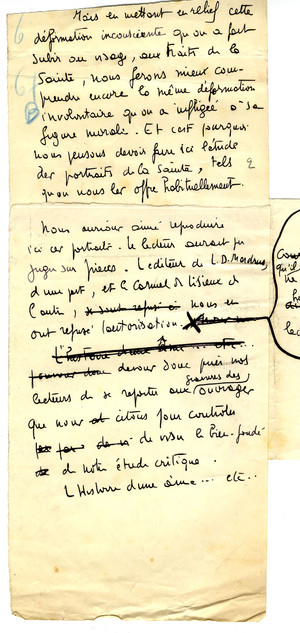 6
Mais en mettant en relief cette
déformation inconsciente qu'on a fait
subir au visage, aux traits de la
67
Sainte, nous ferons mieux com-
prendre encore la même déformation
B
involontaire qu'on a infligée a sa
figure morale. Et c'est pourquoi
nous pensons devoir faire ici l'étude
des portraits de la Sainte, tels
qu'on nous les offre habituellement.
Nous aurions aimé reproduire
ici ces portraits. Le lecteur aurait pu
juger sur pièces. L'éditeur de L.D. Mardrus,
d'une part, et le Carmel de Lisieux de
l'autre, nous en
ont refusé l'autorisation. X
L'histoire d'une âme... etc...
devons donc prier nos
lecteurs de se reporter aux gravures des ouvrages
que nous citons pour contrôler
de visu le bien-fondé
de notre étude critique.
L'Histoire d'une âme... etc..
qu'il